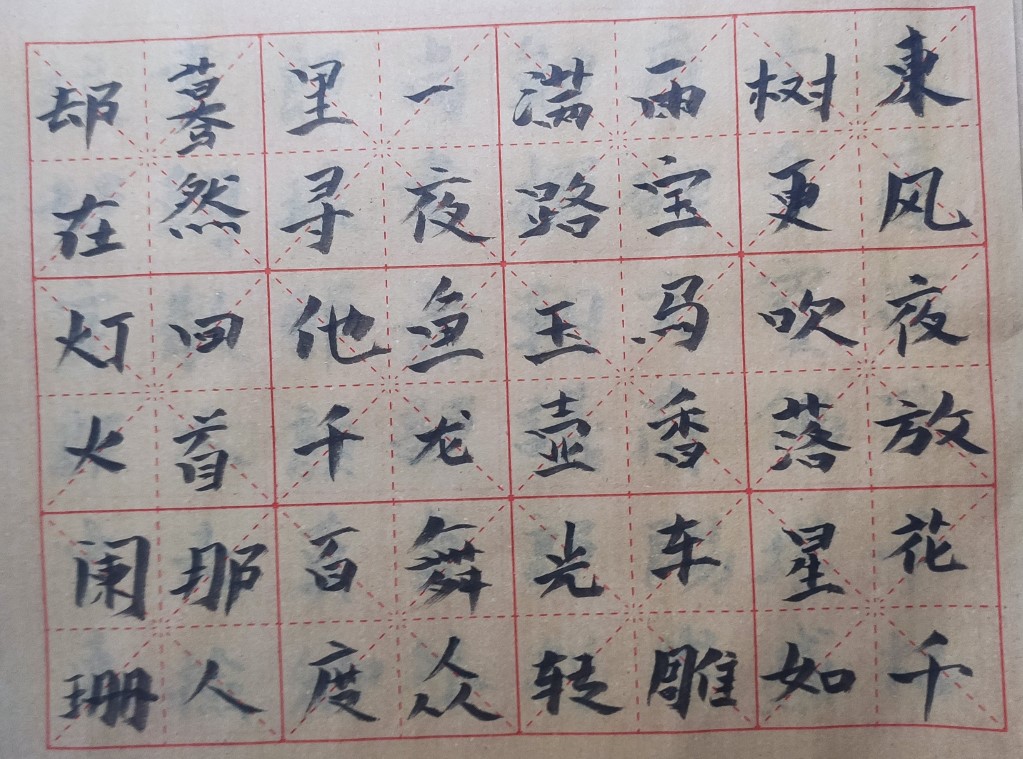 東风夜放花千
树更吹落星如
雨宝马香车雕
满路玉壶光转
一夜鱼龙舞众
里寻他千百度
蓦然回首那人
却在灯火阑珊